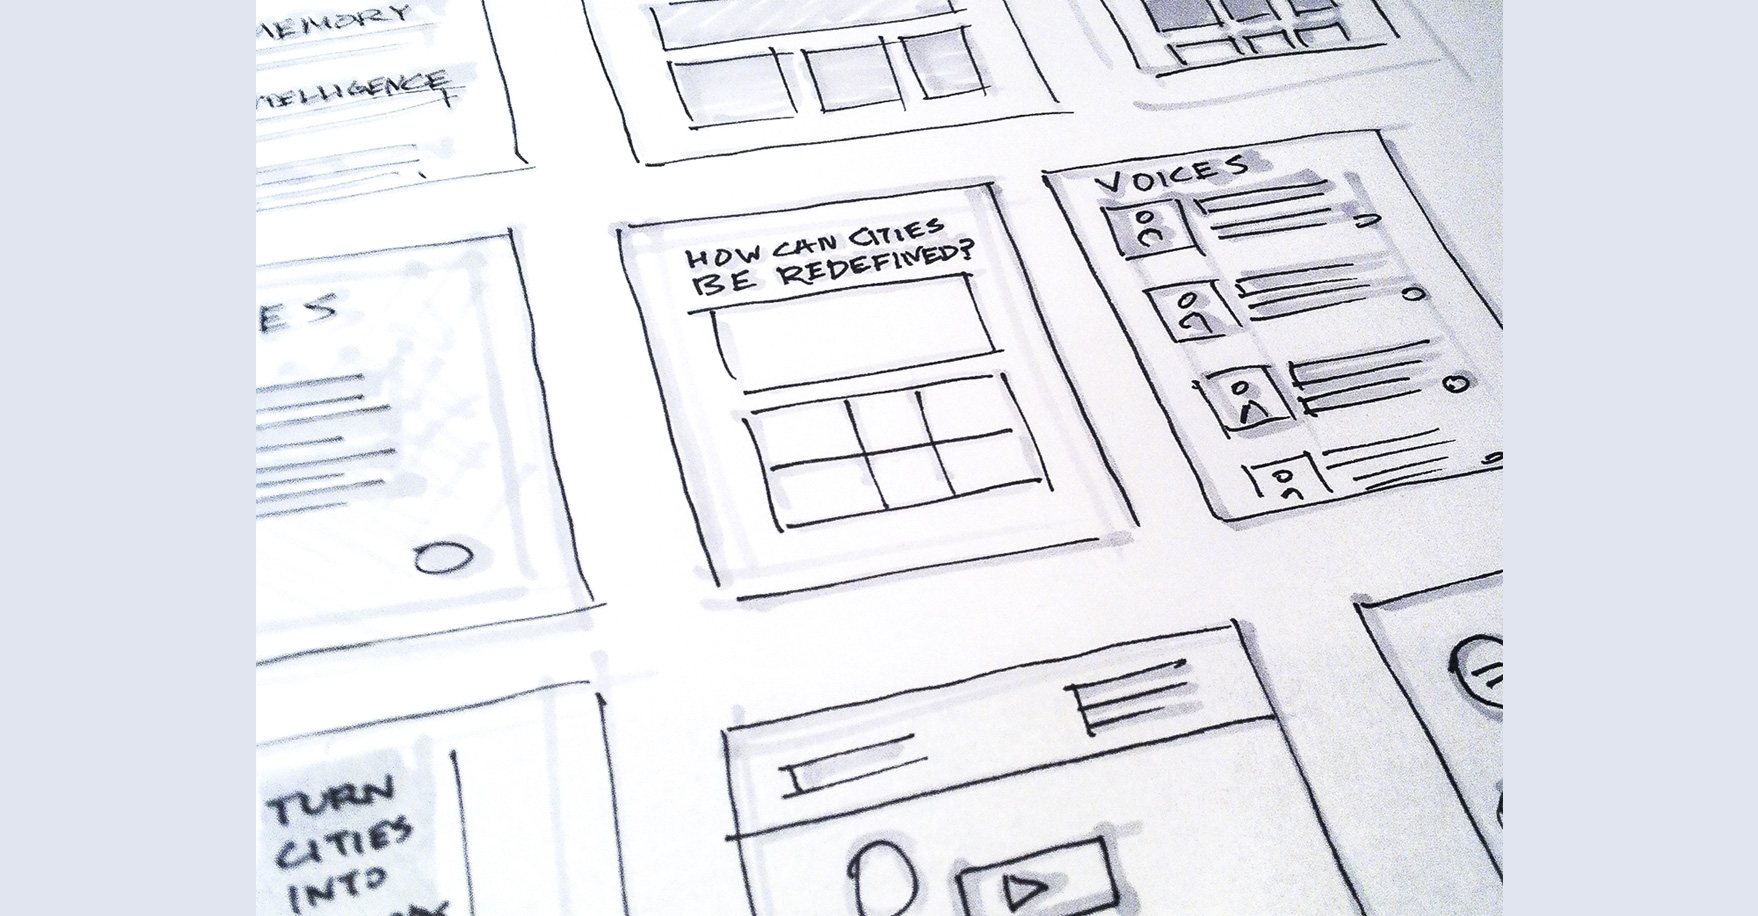 MEMORY
INTELLIGENCE
VOICES
HOW CAN CITIES
BE REDEFINED?
ES
TURN
CITIES
INTO